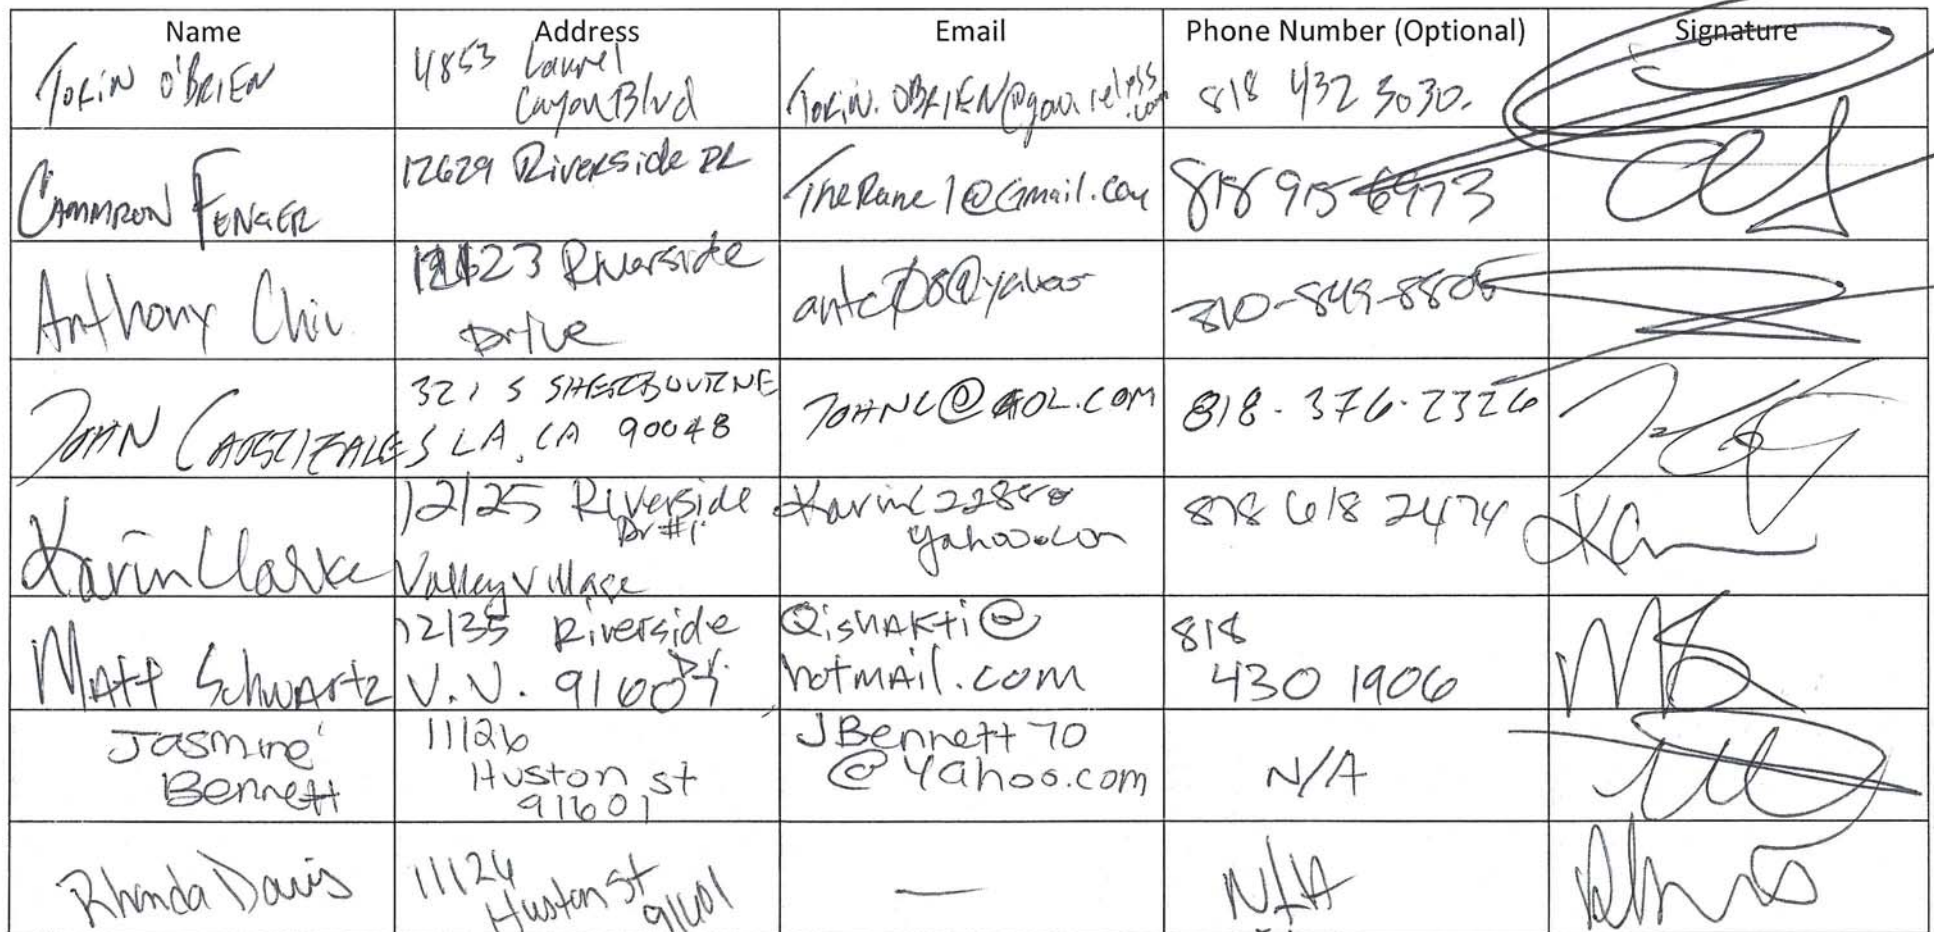 Name Address Email Phone Number (Optional) Signature
Torin O'Brien 4853 Laurel Cayon Blvd 818 432 3030.
Cammron Fenger 12629 Riverside DR 818 915 6973
Anthony Chiu Riverside Drive 310-849-8805
John 321 S SHERBOURNE LA, CA 90048 JOHNC@AOL.COM 818-376-2326
Karin Clarke 12125 Riverside Dr #1 Valley Village 818 618 2474
Matt Schwartz 12135 Riverside Dr. V.V. 91607 Qishakti@hotmail.com 818 430 1906
Jasmine Bennett 11126 Huston st 91601 JBennett70@Yahoo.com N/A
Rhonda Davis 11126 Huston St 91601 — N/A